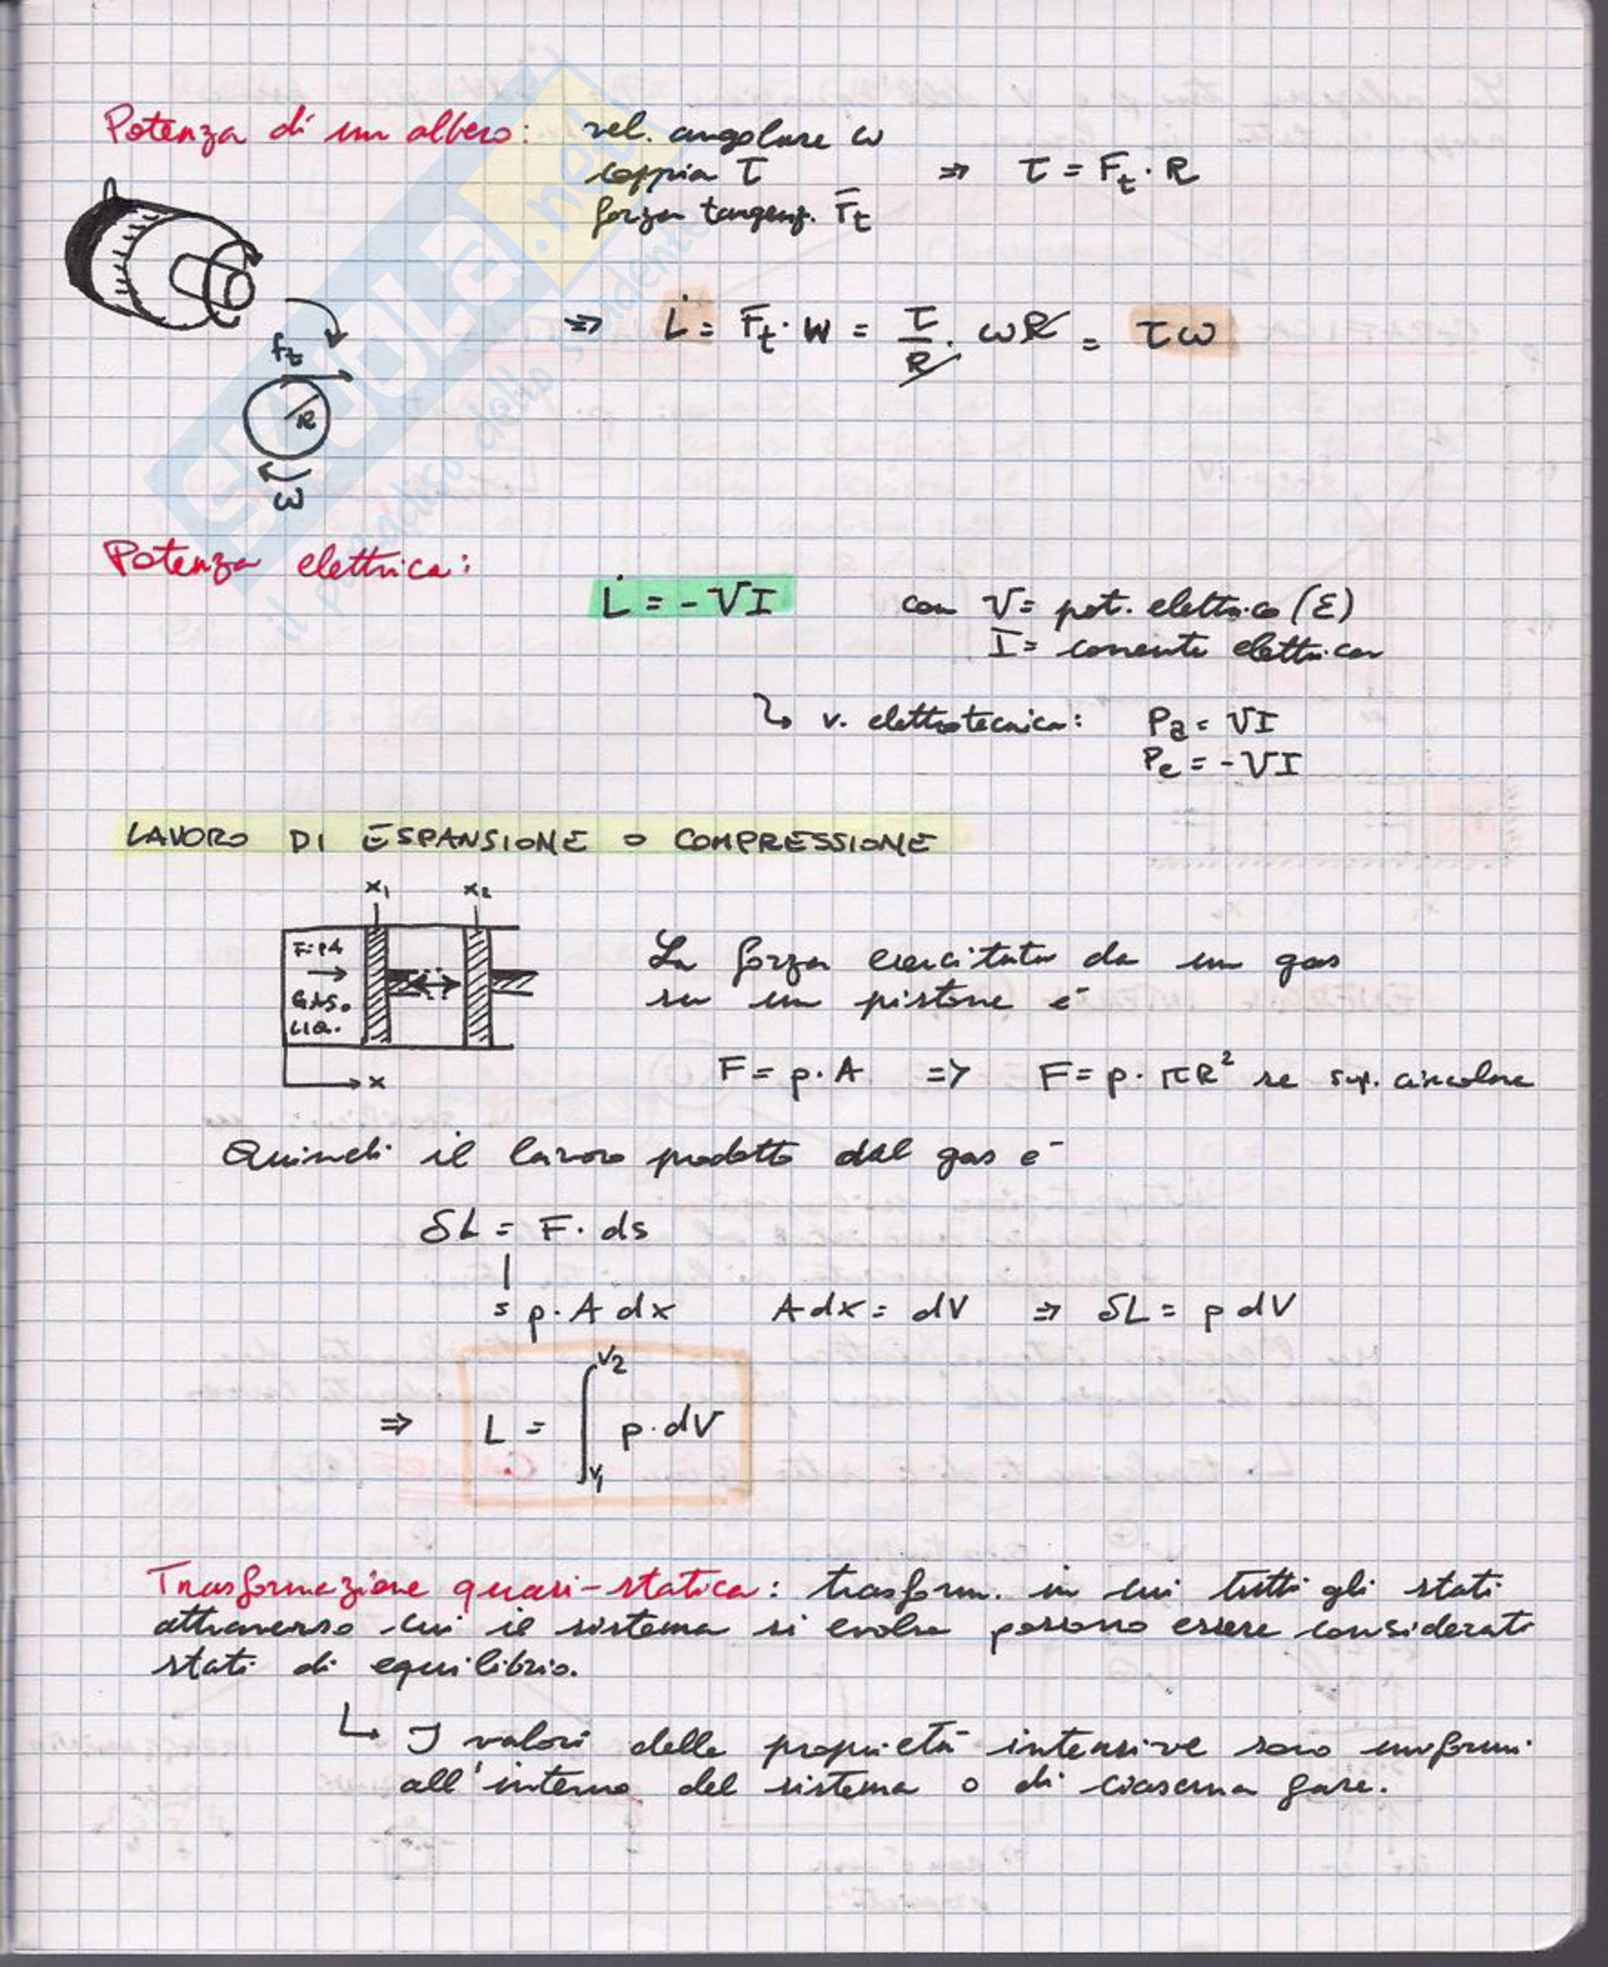 Potenza di un albero: vel. angolare ω
coppia τ ⇒ τ = Ft · R
forza tangenz. Ft
⇒ L̇ = Ft · W = τ/R · ωR = τω
Ft
R
ω
Potenza elettrica:
L̇ = - VI con V = pot. elettrico (E)
I = corrente elettrica
↳ v. elettrotecnica: Pa = VI
Pe = - VI
LAVORO DI ESPANSIONE O COMPRESSIONE
x1 x2
F=pA
GAS O
LIQ.
x
La forza esercitata da un gas
su un pistone è
F = p · A ⇒ F = p · πR² se sup. circolare
Quindi il lavoro prodotto dal gas è
δL = F · ds
= p · A dx A dx = dV ⇒ δL = p dV
⇒ L = ∫ V1 V2 p · dV
Trasformazione quasi-statica: trasform. in cui tutti gli stati
attraverso cui il sistema si evolve possono essere considerati
stati di equilibrio.
↳ I valori delle proprietà intensive sono uniformi
all'interno del sistema o di ciascuna fase.
SKUOLA.net
il paradiso dello studente